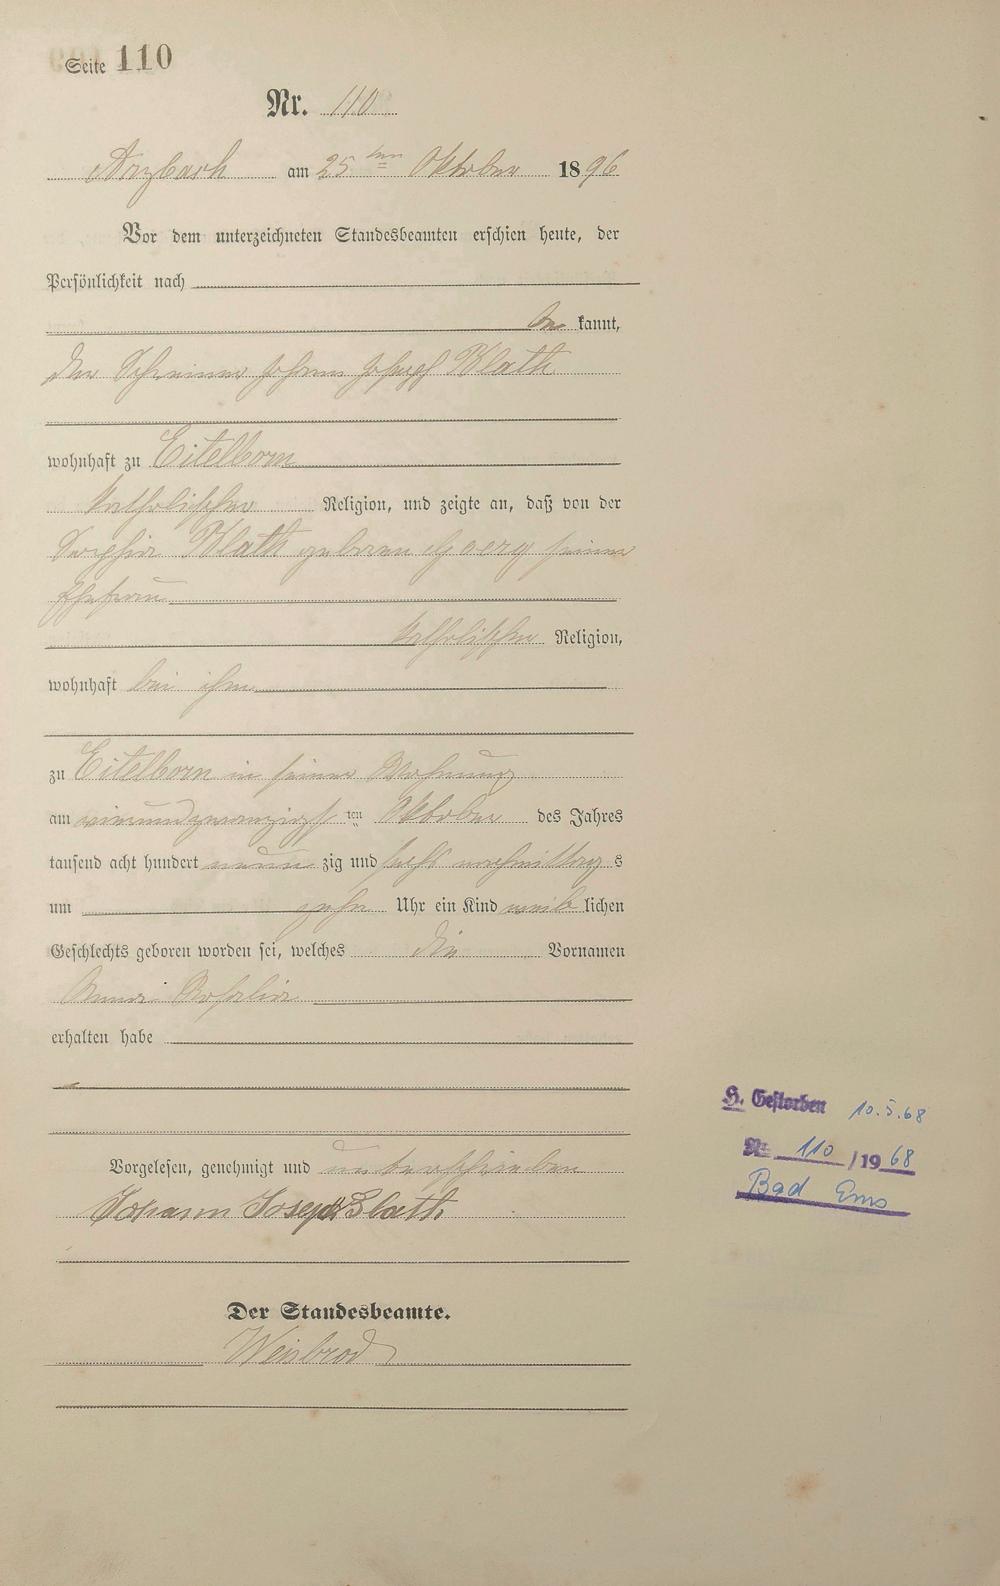 Seite 110
Nr. 110
Arzbach am 25ten Oktober 1896
Vor dem unterzeichneten Standesbeamten erschien heute, der
Persönlichkeit nach
be kannt,
der Schreiner Johann Joseph Blath
wohnhaft zu Eitelborn
katholischer Religion, und zeigte an, daß von der
Sophia Blath geboren Goerg seiner
Ehefrau
katholischen Religion,
wohnhaft bei ihm
zu Eitelborn in seiner Wohnung
am vierundzwanzigst ten Oktober des Jahres
tausend acht hundert neun zig und sechs nachmittag s
um zehn Uhr ein Kind weib lichen
Geschlechts geboren worden sei, welches die Vornamen
Anna Rosalia
erhalten habe
Vorgelesen, genehmigt und unterschrieben
Johann Joseph Blath
Der Standesbeamte.
Weisbrod
H. Gestorben 10.5.68
Nr. 110 / 19 68
Bad Ems